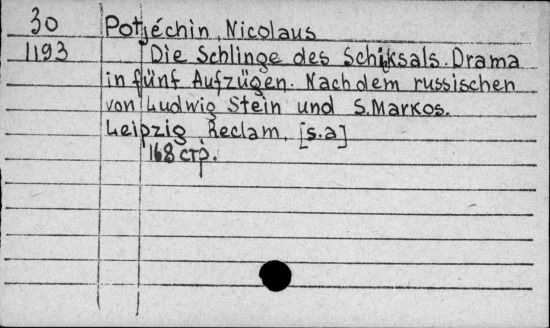 30 Potjéchin, Nicolaus
1193 Die Schlinge des Schiksals. Drama
in fünf Aufzügen. Nach dem russischen
von Ludwig Stein und S. Markos.
Leipzig, Reclam, [s.a]
168 стр.